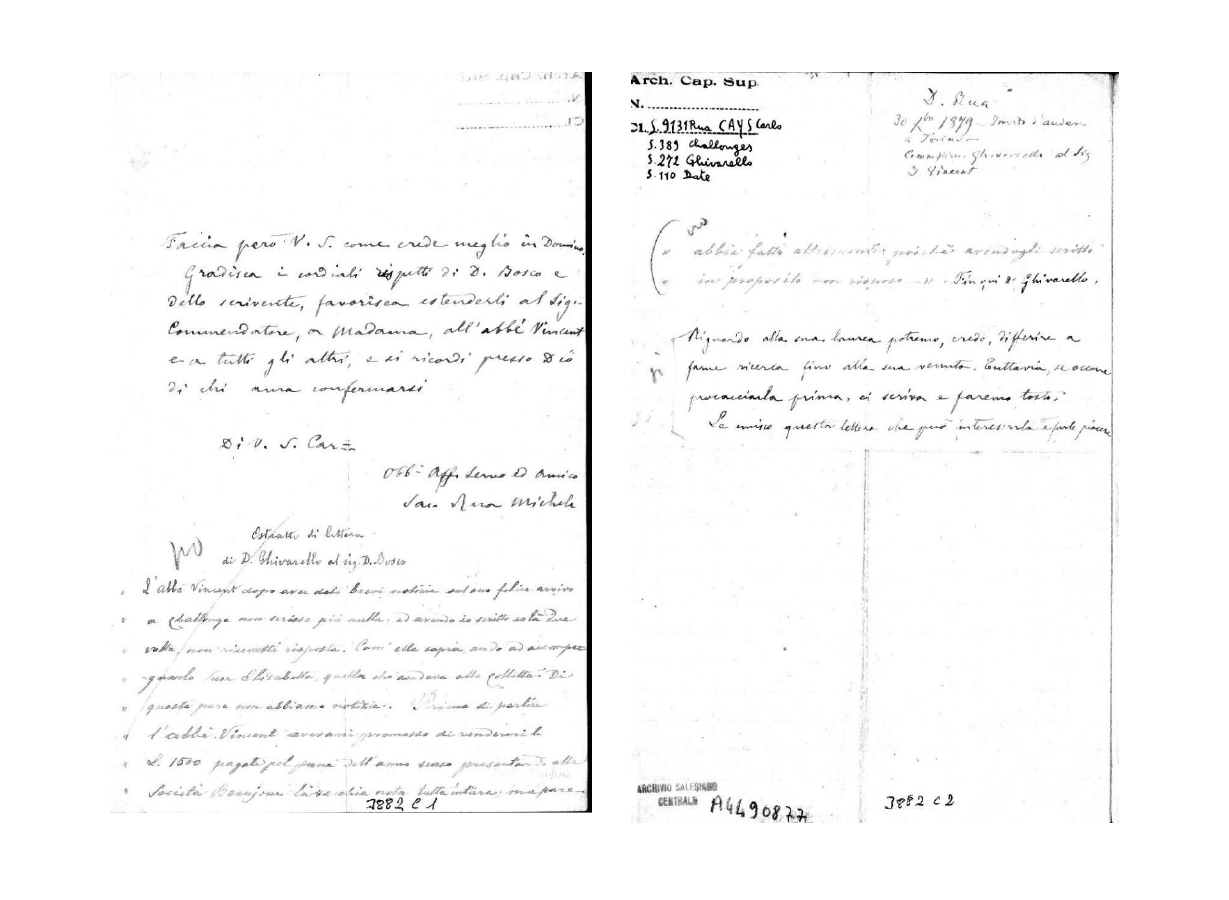 Faccia però V. S. come crede meglio in Domino.
Gradisca i cordiali rispetti di D. Bosco e
dello scrivente, favorisca estenderli al Sig.
Commendatore, a Madama, all'abbé Vincent
e a tutti gli altri, e si ricordi presso Dio
di chi ama confermarsi
Di V. S. Car
Obb. Aff. Servo ed Amico
Sac. Rua Michele
Estratto di lettera
di D. Ghivarello al sig. D. Bosco
" L'abbé Vincent dopo aver dato brevi notizie sul suo felice arrivo
" a Challonge non scrisse più nulla: ed avendo io scritto colà due
" volte, non ricevetti risposta. Com' ella saprà, andò ad accompa
" gnarlo Suor Elisabetta, quella che andava alle collette: Di
" questa pure non abbiamo notizie. Prima di partire
" l'abbé Vincent avevami promesso di rendermi le
" L. 1500 pagate pel pane dell'anno scorso presentando alla
" Società Beaujour la vecchia nota tutta intera: ma pare
3882 C 1
Arch. Cap. Sup.
N.
Cl. S. 9131 Rua CAYS Carlo
S. 389 Challonges
S. 272 Ghivarello
S. 110 Date
D. Rua
30 1879 Invito d'andare
a Torino
Commissione Ghivarello al Sig
D. Vincent
" abbia fatto altrimenti: poichè avendogli scritto
" in proposito non rispose " Fin qui D. Ghivarello.
Riguardo alla sua laurea potremo, credo, differire a
farne ricerca fino alla sua venuta. Tuttavia, se occorre
procacciarla prima, ci scriva e faremo tosto.
Le unisco questa lettera che può interessarla e farle piacere
ARCHIVIO SALESIANO
CENTRALE
A4490877
3882 C 2